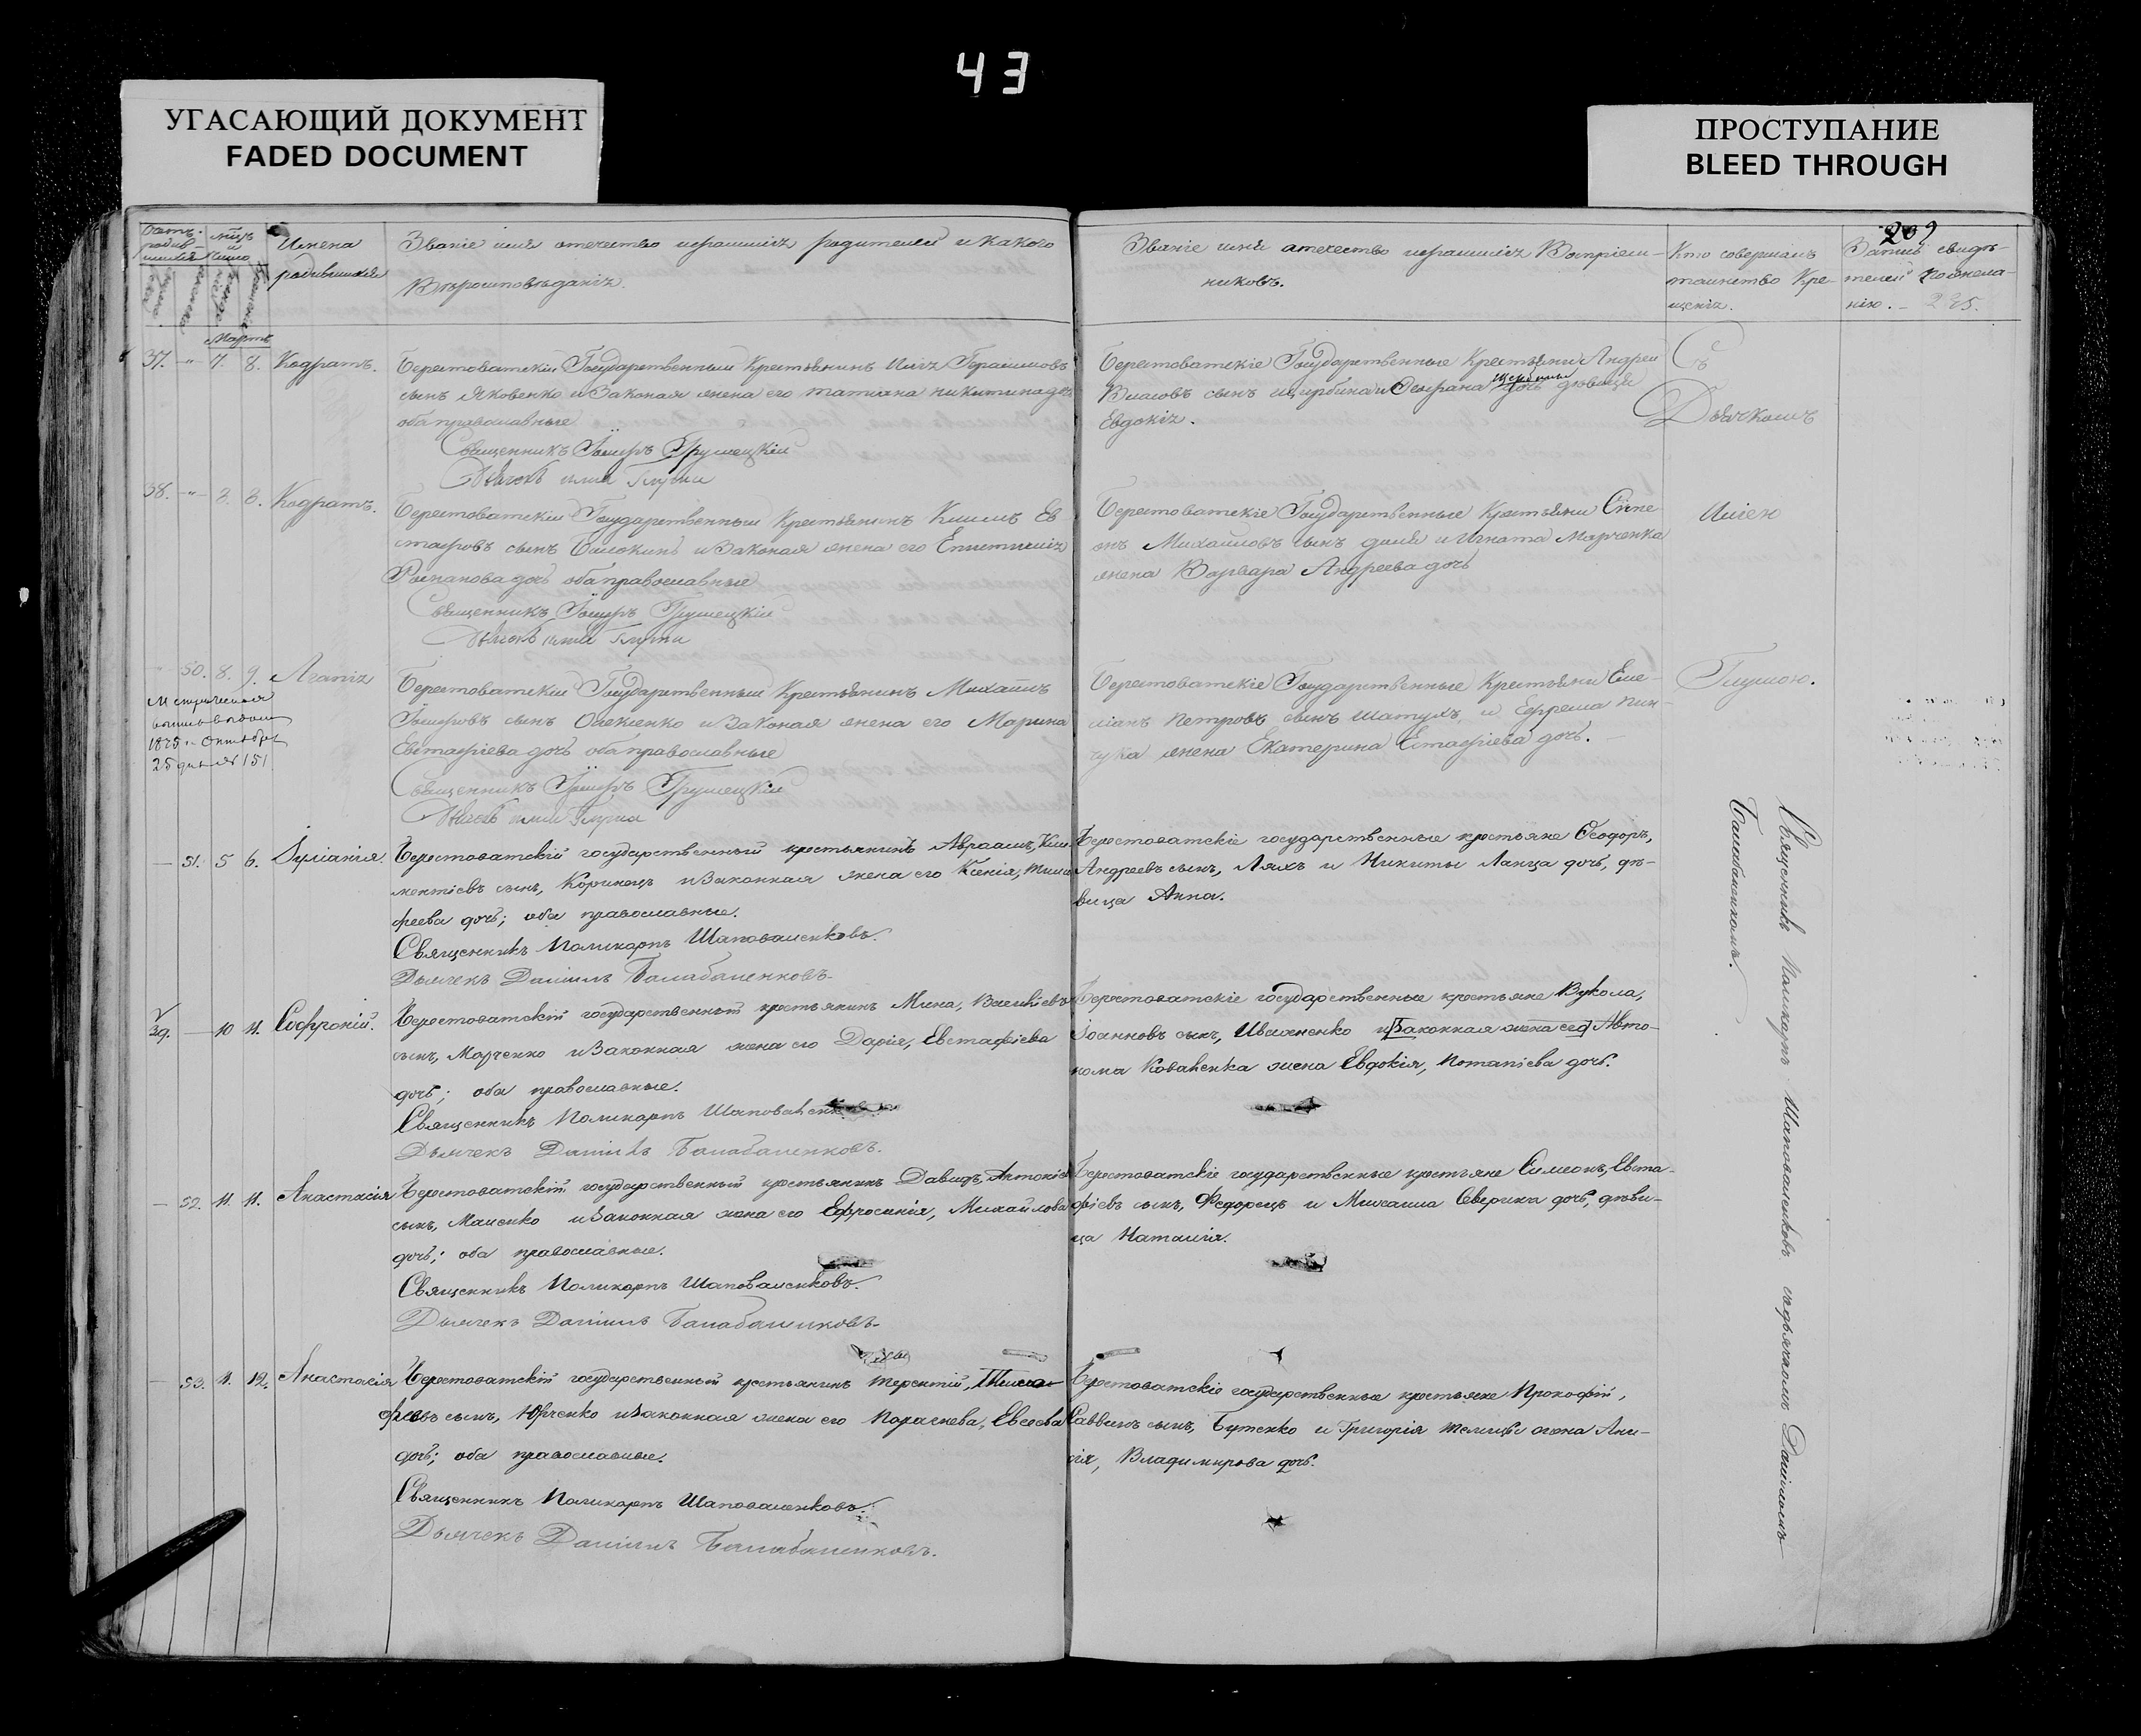 43
УГАСАЮЩИЙ ДОКУМЕНТ
FADED DOCUMENT
ПРОСТУПАНИЕ
BLEED THROUGH
209
Имена
родившихся
Званіе имя отечество и фамилія родителей и какого
Вѣроисповѣданія.
Званіе имя отечество и фамилія Воспріем-
никовъ.
Кто совершалъ
таинство Кре-
щенія.
Запись свидѣ-
телей по жела-
нію. — 225.
Мартъ
37. —"— 7. 8. Кодратъ.
Берестоватскій Государственный Крестьянинъ Илія Герасимовъ
сынъ Яковенко и Законая жена его Татіана Никитина дочь
оба православные
Священникъ Іосифъ Грушецкій
Дьячокъ Илія Глушко
Берестоватскіе Государственные Крестьяни Андрей
Власовъ сынъ Щербина и дочь дѣвица
Евдокія.
Съ
Дьячкомъ
38. —"— 8. Кодратъ.
Берестоватскій Государственный Крестьянинъ Климъ Ев
стафовъ сынъ и Законая жена его Епистимія
Романова дочь оба православные
Священникъ Іосифъ Грушецкій
Дьячокъ Илія Глушко
Берестоватскіе Государственные Крестьяни Степа
нъ Михайловъ сынъ и Игната Марченка
жена Варвара Андреева дочь
Иліею
50. 8. 9. Агапія
1875 Октября
25 дня № 151
Берестоватскій Государственный Крестьянинъ Михаилъ
Іосифовъ сынъ Олексенко и Законая жена его Марина
Евстафіева дочь оба православные
Священникъ Іосифъ Грушецкій
Дьячокъ Илія Глушко
Берестоватскіе Государственные Крестьяни Еме-
ліанъ Петровъ сынъ Шатулъ, и Ефрема Пин-
чука жена Екатерина Естафіева дочь. —
Глушкою.
— 51. 5 6. Іуліанія.
Берестоватскій государственный крестьянинъ Авраамъ, Кли-
ментіевъ сынъ, Коринецъ и Законная жена его Ксенія, Тимо
феева дочь; оба православные.
Священникъ Поликарпъ Шаповаленковъ.
Дьячекъ Даніилъ Балабаненковъ.
Берестоватскіе государственные крестьяне Ѳеодоръ,
Андреевъ сынъ, Ляхъ и Никиты Ланца дочь, дѣ-
вица Анна.
39. — 10 11. Софроній.
Берестоватскій государственный крестьянинъ Мина, Василіевъ
сынъ, Марченко и Законная жена его Дарія, Евстафіева
дочь; оба православные.
Священникъ Поликарпъ Шаповаленковъ
Дьячекъ Даніилъ Балабаненковъ.
Берестоватскіе государственные крестьяне Вукола,
Іоанновъ сынъ, Иваненко и [Законная жена его] Авто-
нома Коваленка жена Евдокія, Потапіева дочь.
— 52. 11. 11. Анастасія
Берестоватскій государственный крестьянинъ Давидъ, Антоніевъ
сынъ, Масенко и Законная жена его Ефросинія, Михайлова
дочь; оба православные.
Священникъ Поликарпъ Шаповаленковъ.
Дьячекъ Даніилъ Балабаненковъ.
Берестоватскіе государственные крестьяне Симеонъ, Евста-
фіевъ сынъ, Федорецъ и Михаила Северина дочь, дѣви-
ца Наталія.
— 53. 11. 12. Анастасія
Берестоватскій государственный крестьянинъ Терентій, Тимо-
феевъ сынъ, Юрченко и Законная жена его Параскева, Евсеева
дочь; оба православные.
Священникъ Поликарпъ Шаповаленковъ.
Дьячекъ Даніилъ Балабаненковъ.
Берестоватскіе государственные крестьяне Прокофій,
Саввинъ сынъ, Бутенко и Григорія Телицы жена Ани-
сія, Владимирова дочь.
Священникъ Поликарпъ Шаповаленковъ съ дьячкомъ Даніиломъ
Балабаненкомъ.